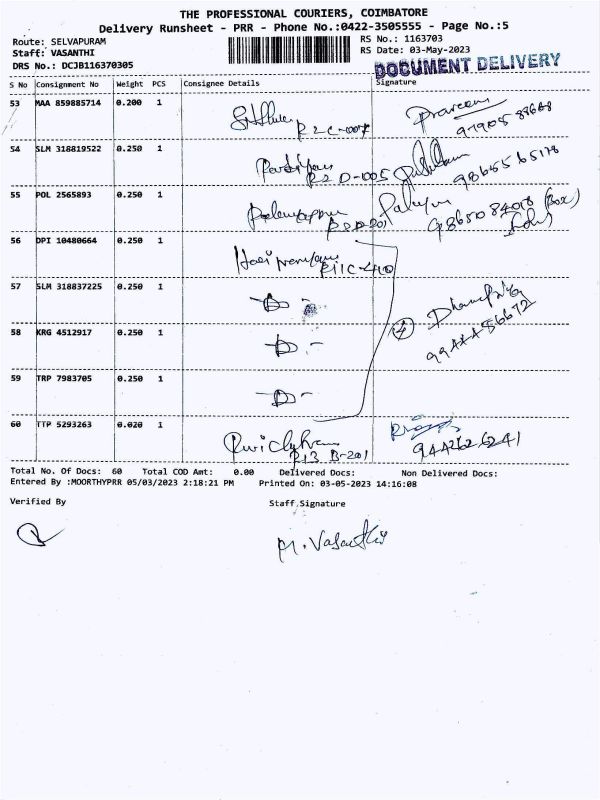 THE PROFESSIONAL COURIERS, COIMBATORE
Delivery Runsheet - PRR - Phone No.:0422-3505555 - Page No.:5
Route: SELVAPURAM
RS No.: 1163703
Staff: VASANTHI
RS Date: 03-May-2023
DRS No.: DCJB116370305
DOCUMENT DELIVERY
S No Consignment No Weight PCS Consignee Details Signature
53 MAA 859885714 0.200 1
54 SLM 318819522 0.250 1
R2 D-005
9865565178
55 POL 2565893 0.250 1
(Box)
56 DPI 10480664 0.250 1
R11C-410
57 SLM 318837225 0.250 1
58 KRG 4512917 0.250 1
4
59 TRP 7983705 0.250 1
60 TTP 5293263 0.020 1
R13 B-201
9442626241
Total No. Of Docs: 60 Total COD Amt: 0.00 Delivered Docs: Non Delivered Docs:
Entered By :MOORTHYPRR 05/03/2023 2:18:21 PM Printed On: 03-05-2023 14:16:08
Verified By Staff Signature
M. Vasanthi